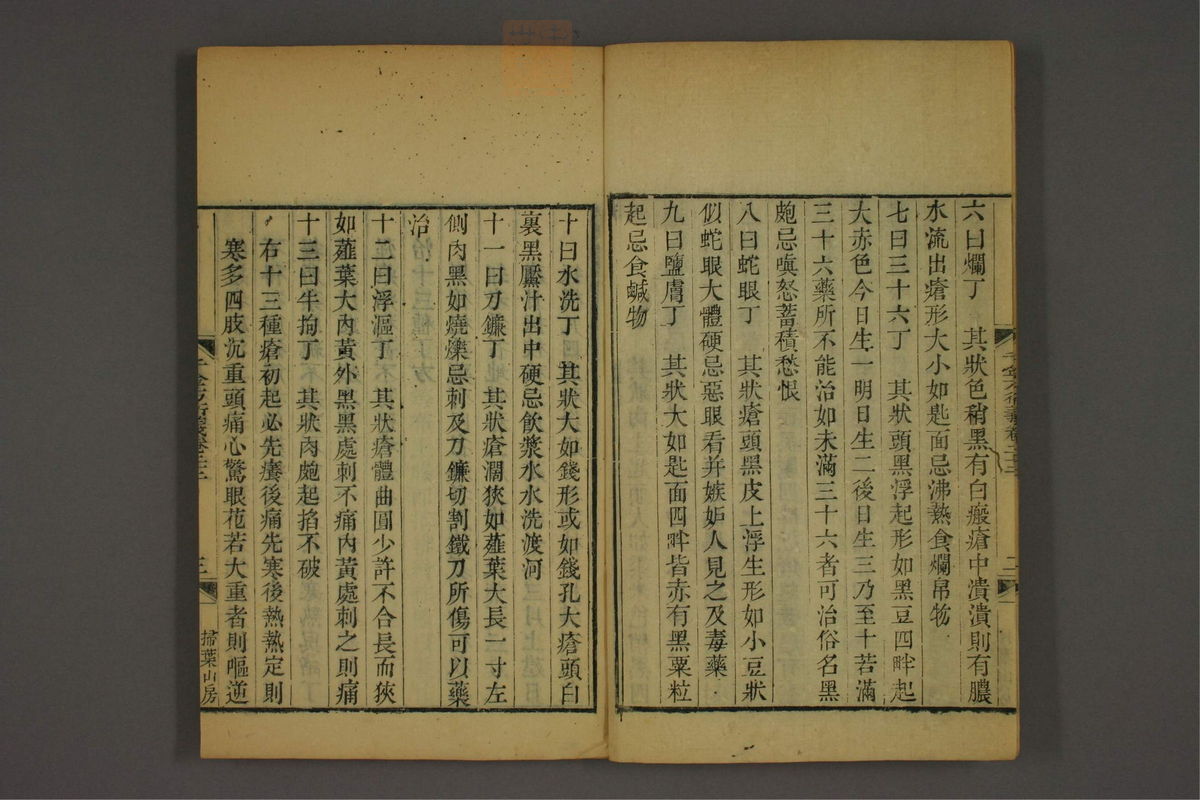 六曰爛丁　其狀色稍黑有白瘢瘡中潰潰則有膿
水流出瘡形大小如匙面忌沸熱食爛帛物
七曰三十六丁　其狀頭黑浮起形如黑豆四畔起
大赤色今日生一明日生二後日生三乃至十若滿
三十六藥所不能治如未滿三十六者可治俗名黑
皰忌嗔怒蓄積愁恨
八曰蛇眼丁　其狀瘡頭黑皮上浮生形如小豆狀
似蛇眼大體硬忌惡眼看并嫉妒人見之及毒藥
九曰鹽膚丁　其狀大如匙面四畔皆赤有黑粟粒
起忌食鹹物
二
十曰水洗丁　其狀大如錢形或如錢孔大瘡頭白
裏黑黶汁出中硬忌飲漿水水洗渡河
十一曰刀鐮丁　其狀瘡濶狹如薤葉大長一寸左
側肉黑如燒爍忌刺及刀鐮切割鐵刀所傷可以藥
治
十二曰浮漚丁　其狀瘡體曲圓少許不合長而狹
如薤葉大內黃外黑黑處刺不痛內黃處刺之則痛
十三曰牛拘丁　其狀肉皰起掐不破
右十三種瘡初起必先癢後痛先寒後熱熱定則
寒多四肢沉重頭痛心驚眼花若大重者則嘔逆
三
掃葉山房